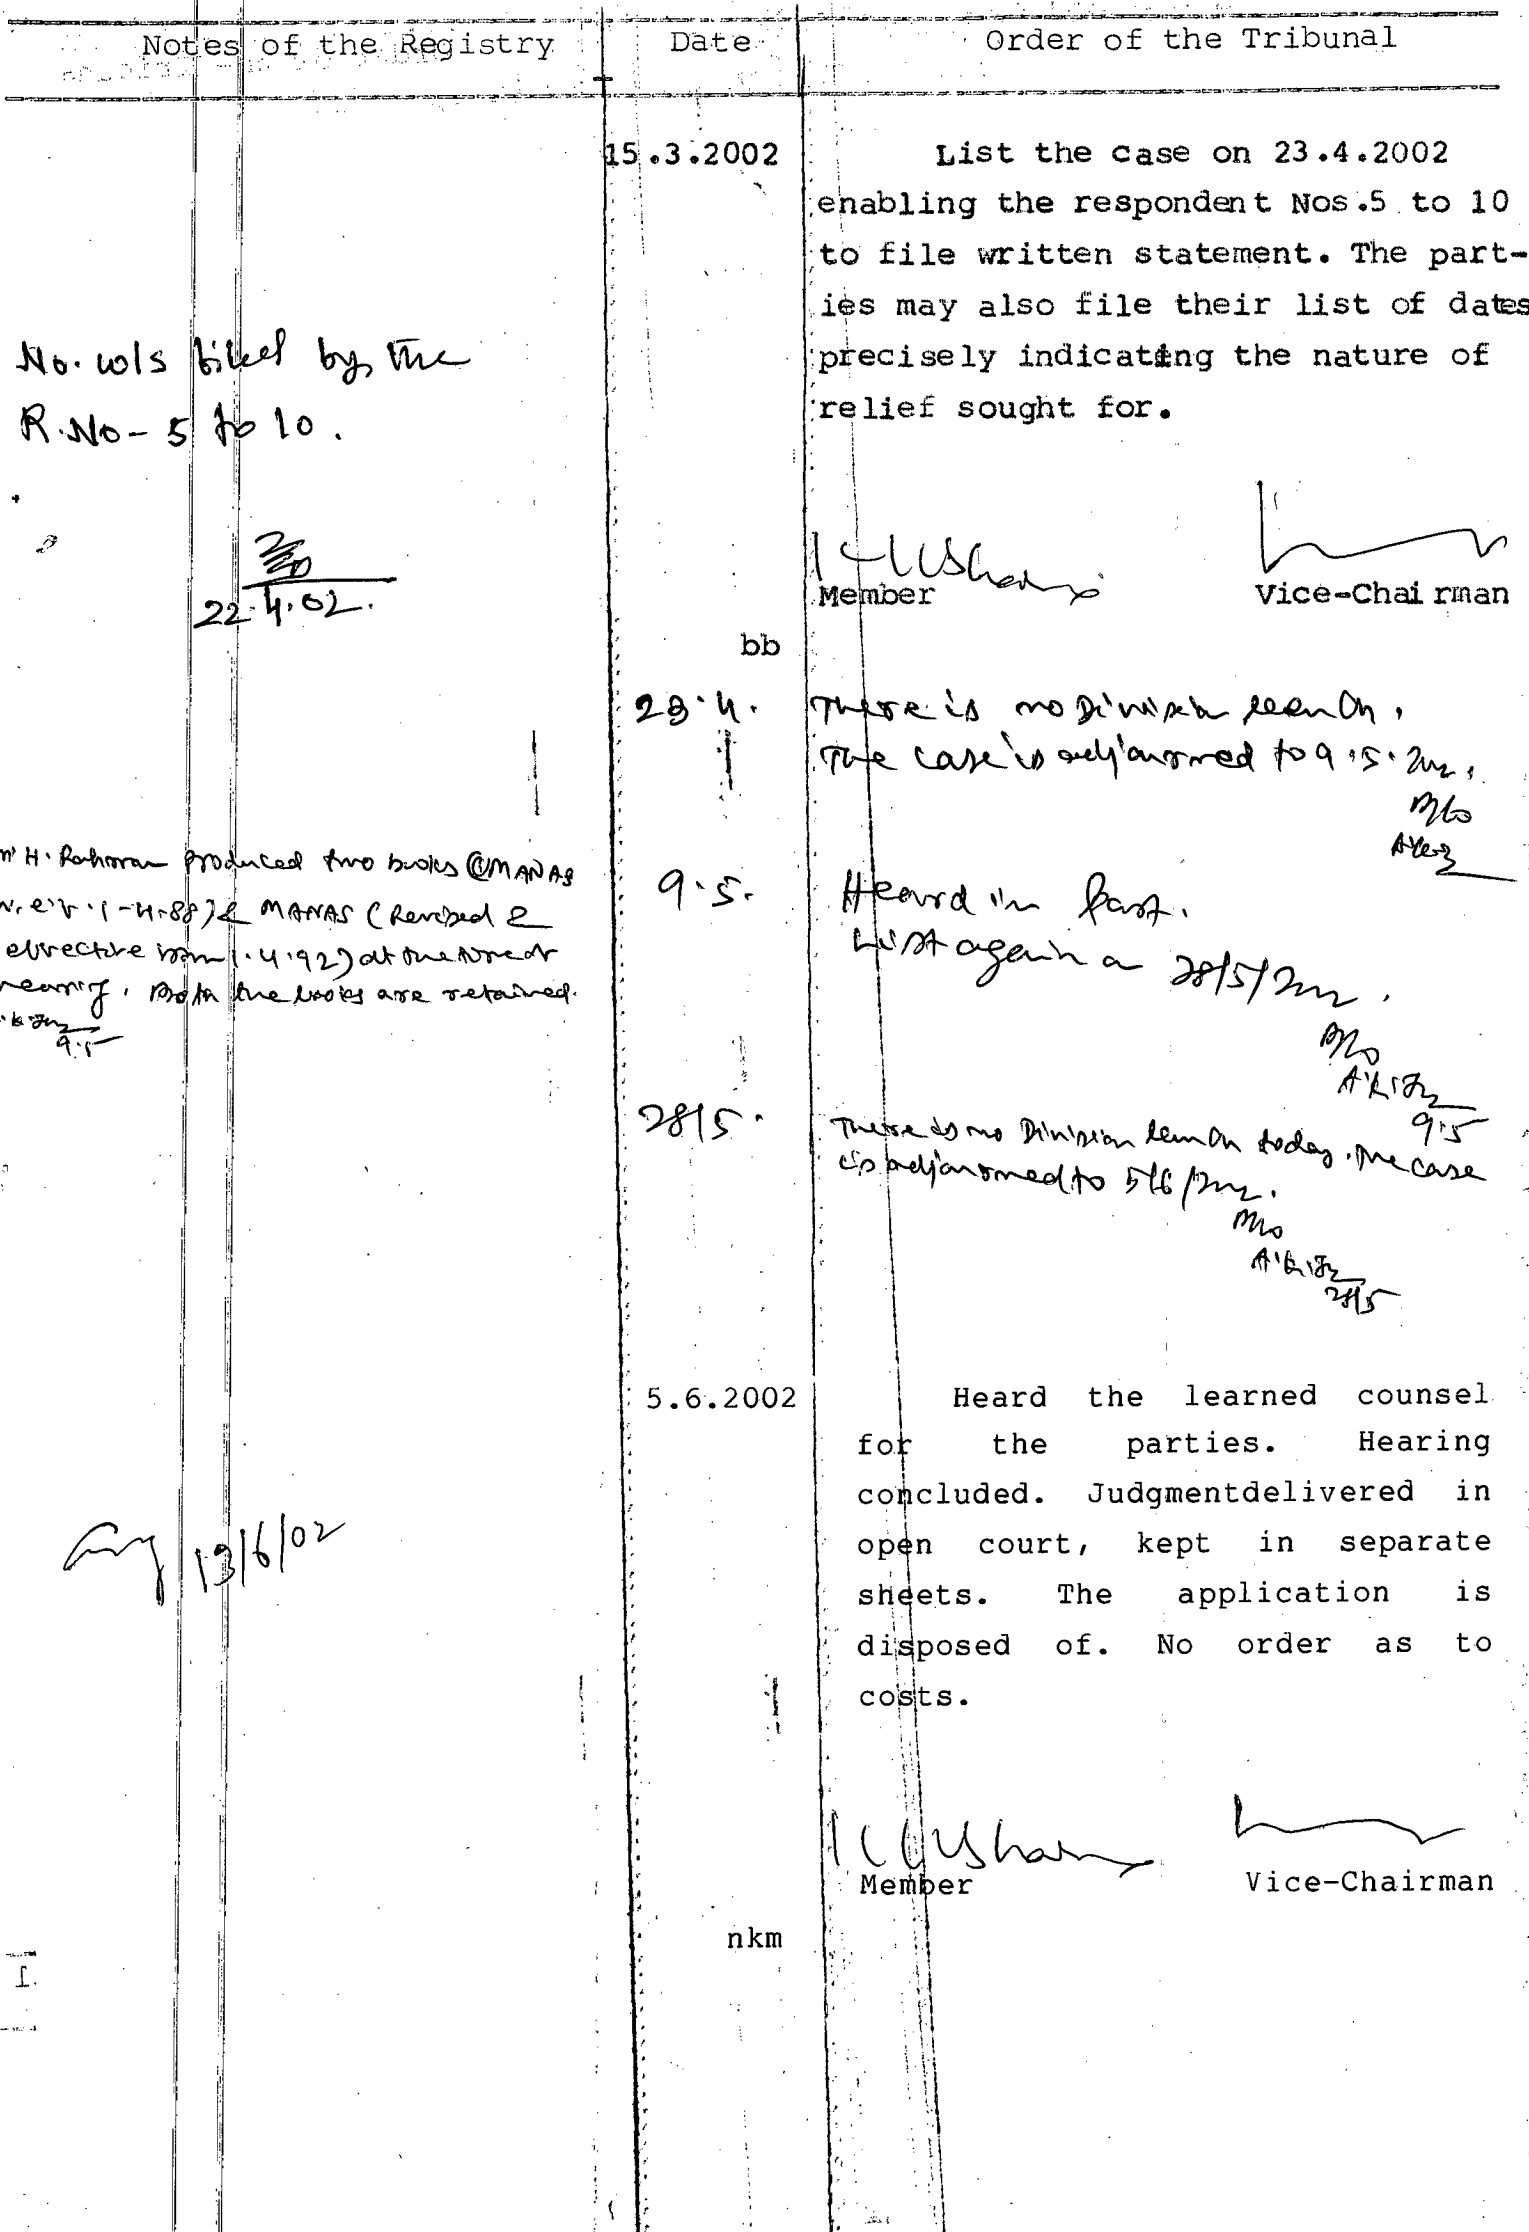 Notes of the Registry Date Order of the Tribunal
15.3.2002
List the case on 23.4.2002
enabling the respondent Nos.5 to 10
to file written statement. The part-
ies may also file their list of dates
precisely indicating the nature of
relief sought for.
No. w/s filed by the
R.No- 5 to 10.
22.4.02.
Member Vice-Chairman
bb
23.4. There is no Division bench.
The case is adjourned to 9.5.
Mo
H. Rahman produced two books MANAS
w.e.f. 1-4-88) & MANAS (Revised &
effective from 1.4.92) at the time of
hearing. Both the books are retained.
9.5
9.5. Heard in part.
List again on 28/5/
Mo
9.5
28/5. There is no Division bench today. The case
is adjourned to 5/6/
Mo
28/5
5.6.2002
Heard the learned counsel
for the parties. Hearing
concluded. Judgmentdelivered in
open court, kept in separate
sheets. The application is
disposed of. No order as to
costs.
13/6/02
Member Vice-Chairman
nkm